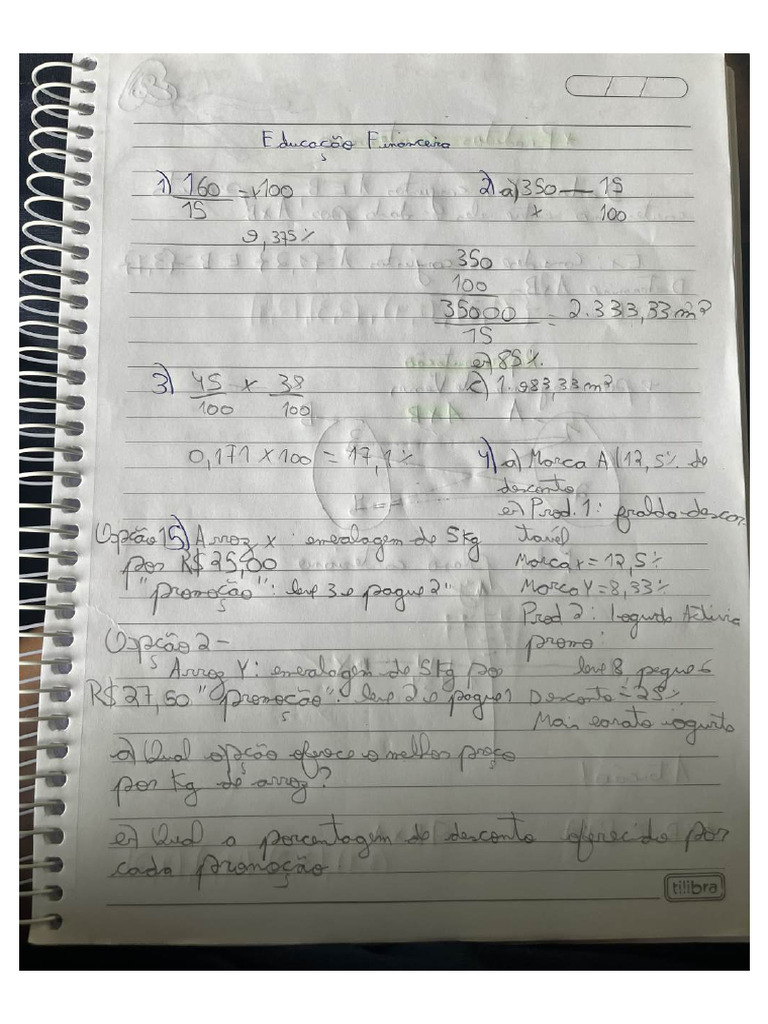 Educação Financeira
1) 160/15 = x100
9,375%
2) a) 350 — 15
x 100
350
100
35000/15 = 2.333,33m²
b) 85%
c) 1.983,33m²
3) 45/100 x 38/100
0,171 x 100 = 17,1%
4) a) Marca A (12,5% de
desconto
b) Prod. 1: fralda descar
tavél
Marca x = 12,5%
Marca Y = 8,33%
Prod 2: Iogurde Activia
promo:
leve 8 pegue 6
Desconto = 25%
Mais barato iogurto
Opção 1 5) Arroz x: embalagem de 5kg
por R$ 25,00
"promoção": leve 3 e pague 2"
Opção 2 -
Arroz Y: embalagem de 5kg por
R$ 27,50 "promoção": leve 2 e pague 1
a) Qual opção oferece o melhor preço
por Kg de arroz?
b) Qual a porcentagem de desconto oferecido por
cada promoção
tilibra